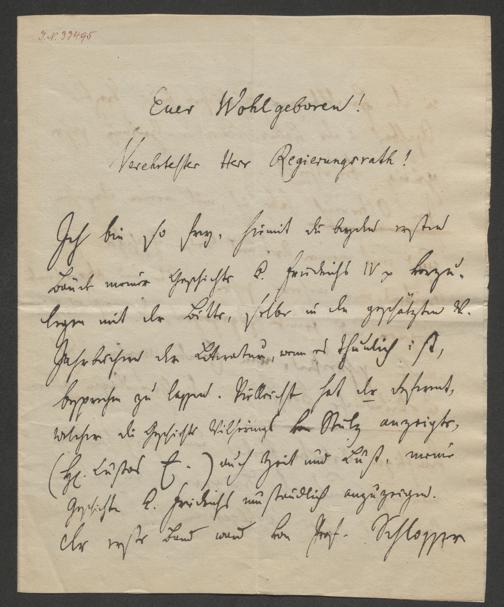 I.N. 33495
Euer Wohlgeboren!
Verehrtester Herr Regierungsrath!
Ich bin so frey, hiemit die beyden ersten
Bände meiner Geschichte K. Friedrichs IV vorzu-
legen mit der Bitte, selbe in den geschätzten
Jahrbüchern der Literatur, wenn es thunlich ist,
besprechen zu lassen. Vielleicht hat der Referent,
welcher die Geschichte Wilherings von Stülz anzeigte,
auch Zeit und Lust, meine
Geschichte K. Friedrichs umständlich anzuzeigen.
Der erste Band ward von Prof. Schlosser